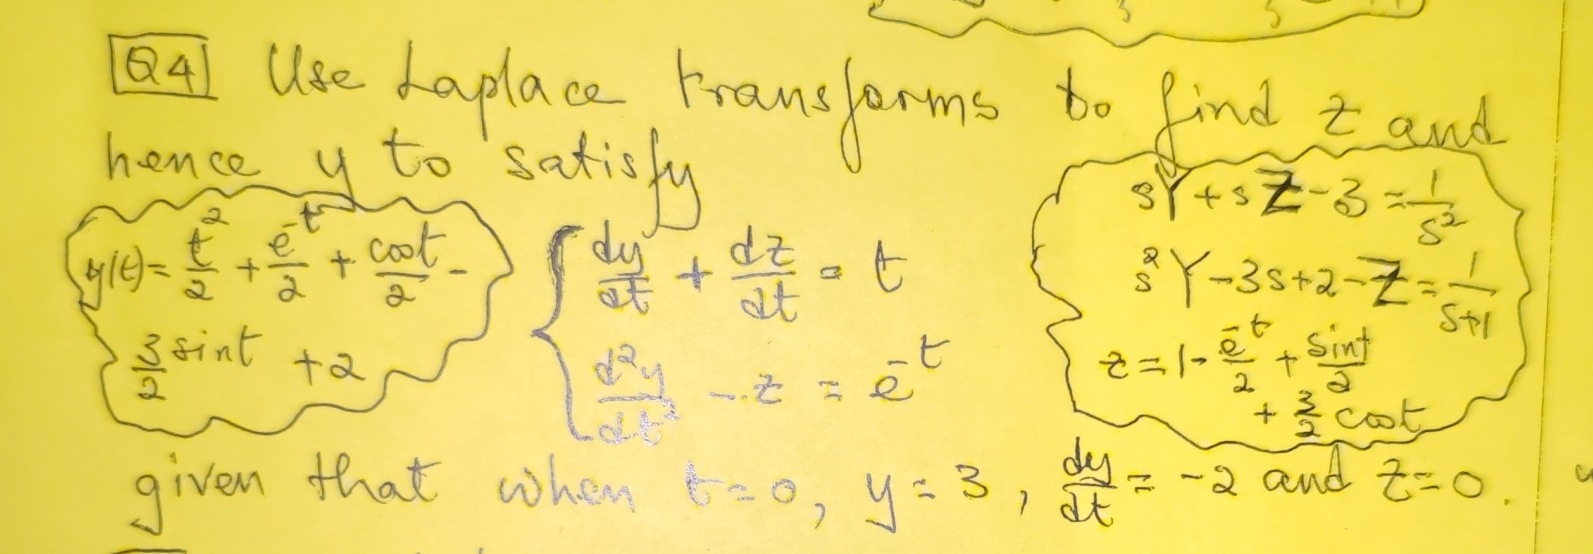 Q4 Use Laplace transforms to find z and
hence y to satisfy
y(t) = t²/2 + e^-t/2 + cost/2 -
3/2 sint + 2
{ dy/dt + dz/dt = t
d²y/dt² - z = e^-t
sY + sZ - 3 = 1/s²
s²Y - 3s + 2 - Z = 1/(s+1)
z = 1 - e^-t/2 + sint/2
+ 3/2 cost
given that when t=0, y=3, dy/dt = -2 and z=0.